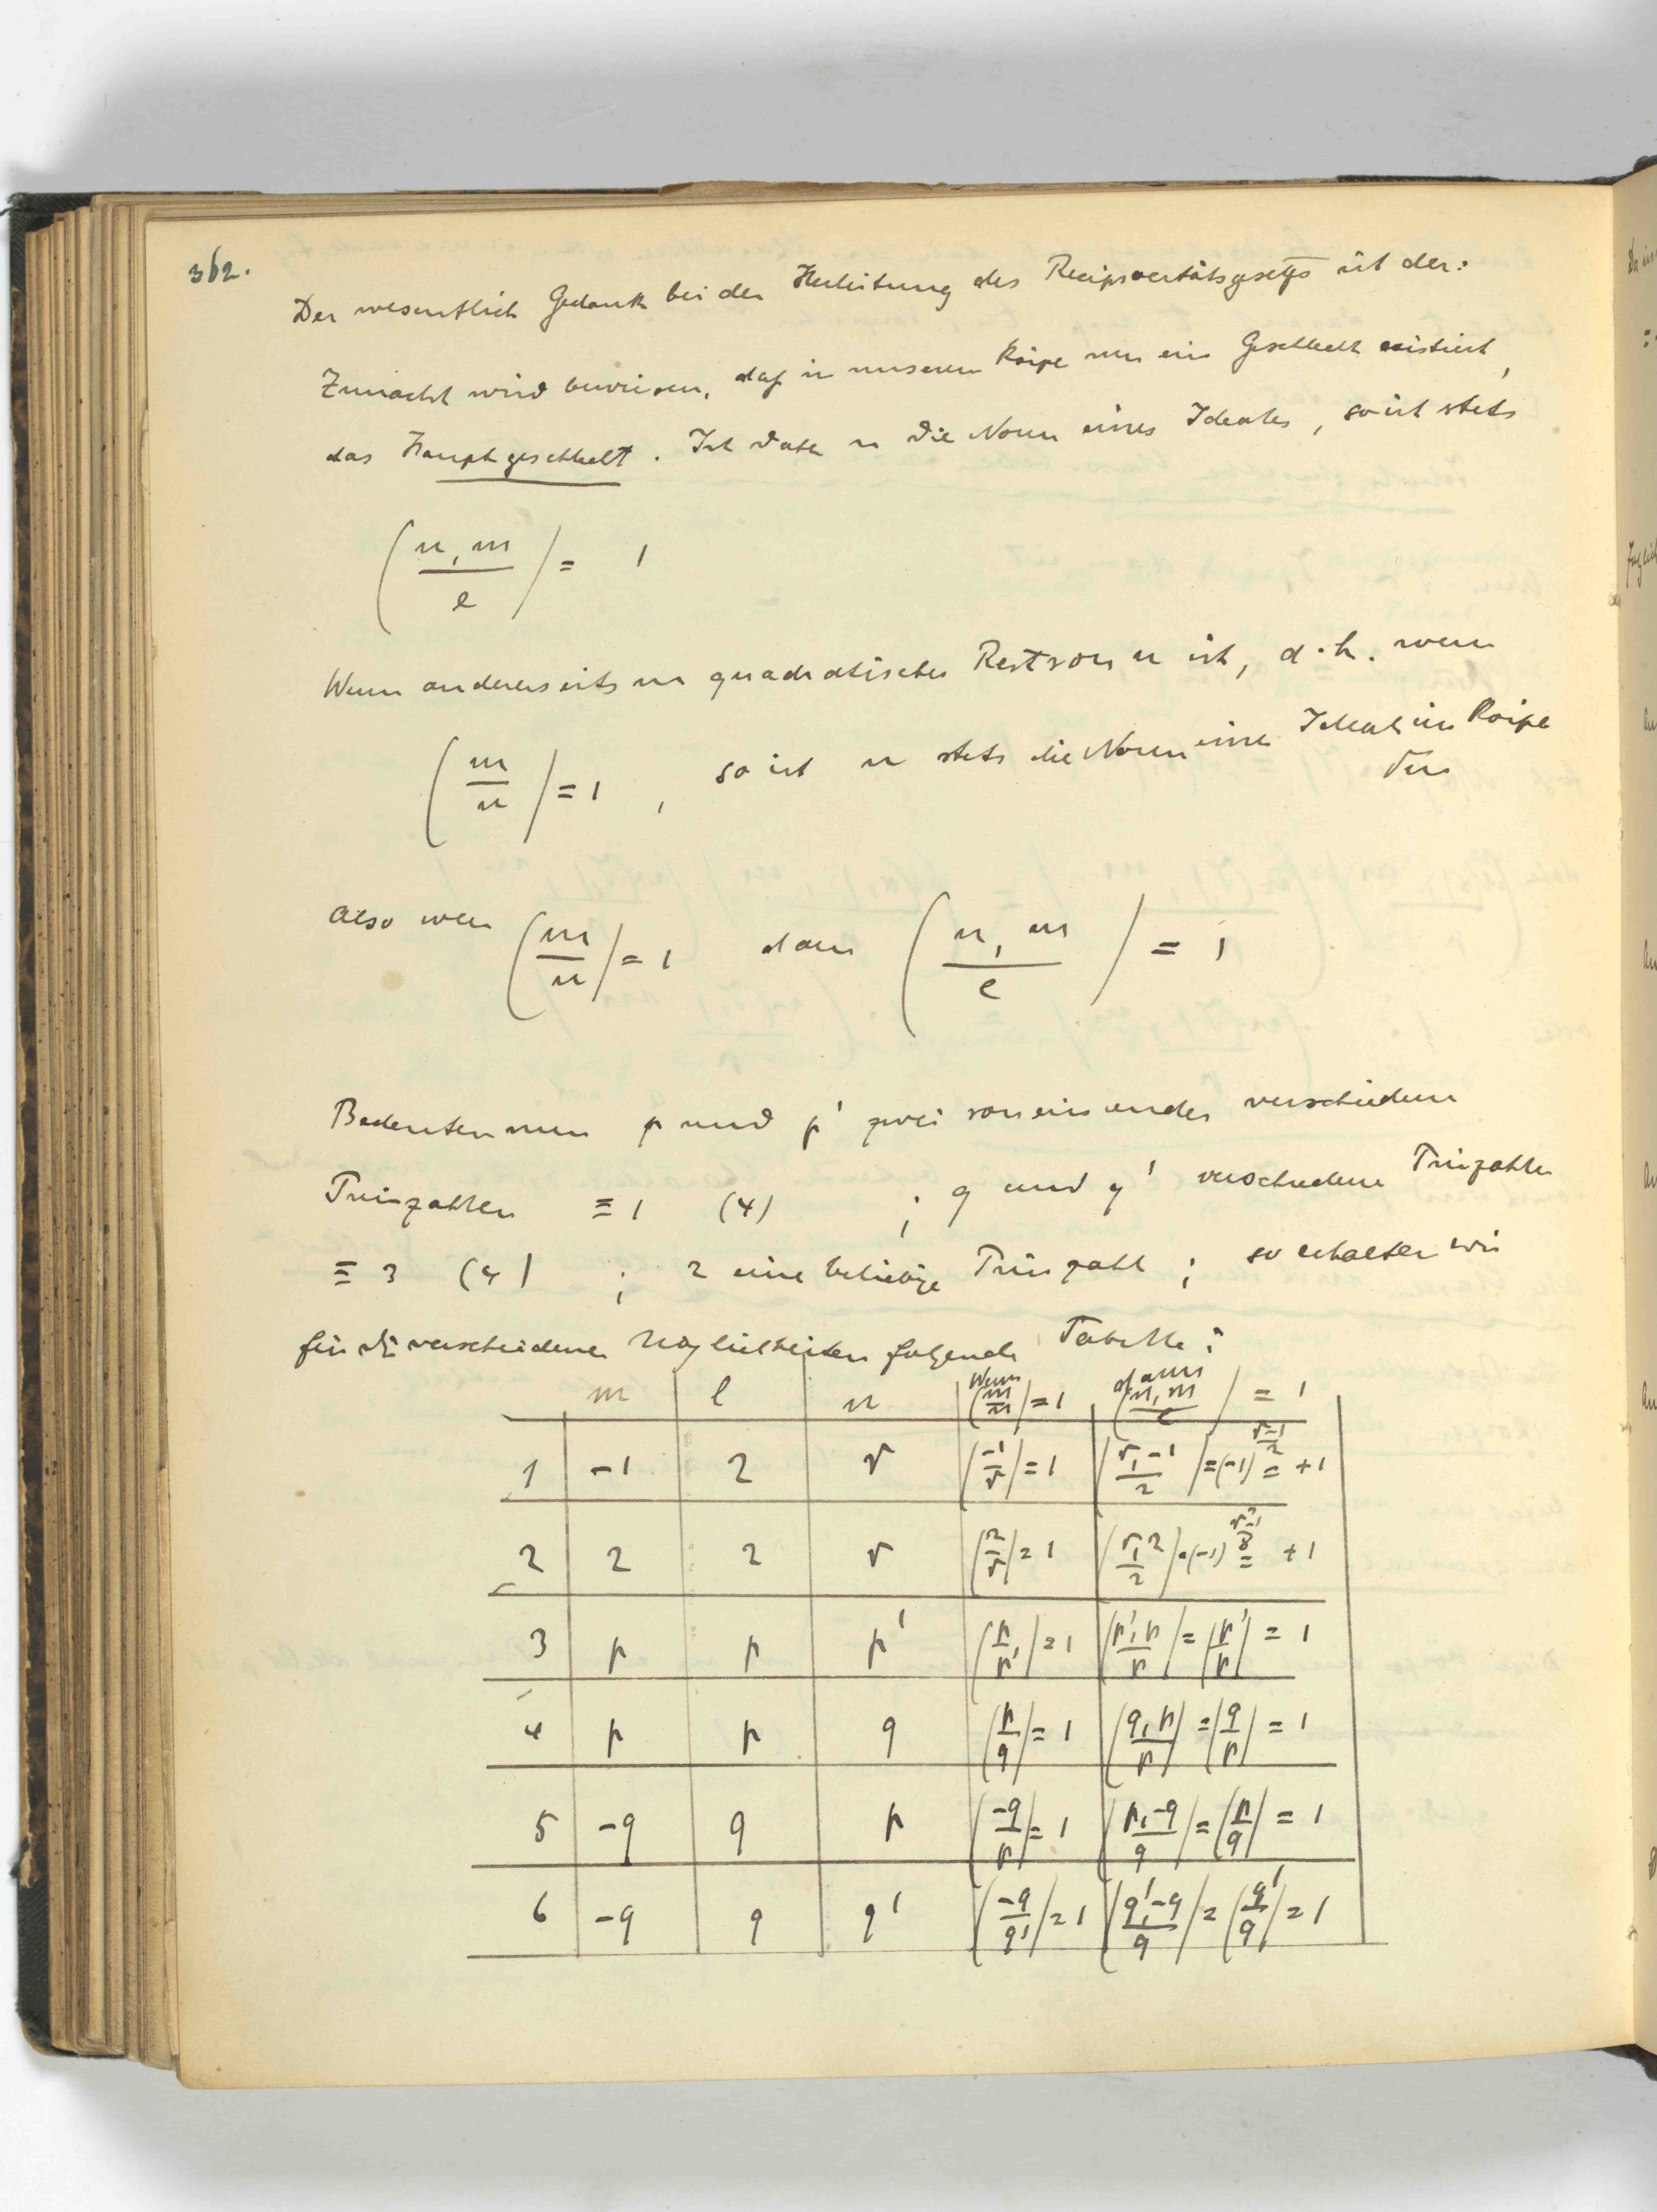 362.
Der wesentlich Gedank bei der Herleitung des Reciprocitätsgesetzs ist der:
Zunächst wird bewiesen, daß in unserem Körpe nur ein Geschlecht existiert,
das Hauptgeschlecht. Ist daher n die Norm eines Ideales, so ist stets
(n, m / l) = 1
Wenn andererseits m quadratischer Rest von n ist, d.h. wenn
(m / n) = 1, so ist n stets die Norm eines Ideals im Körpe
Also wenn (m / n) = 1 dann (n, m / l) = 1
Bedeuten nun p und p' zwei von einander verschiedene
Primzahlen ≡ 1 (4) ; q und q' verschiedene Primzahlen
≡ 3 (4) ; r eine beliebige Primzahl ; so erhalten wir
für die verschiedenen Möglichkeiten folgende Tabelle:
m l n Wenn (m / n) = 1 dann (n, m / l) = 1
1 -1 2 r (-1 / r) = 1 (r, -1 / 2) = (-1)^{(r-1)/2} = +1
2 2 2 r (2 / r) = 1 (r, 2 / 2) = (-1)^{(r²-1)/8} = +1
3 p p p' (p / p') = 1 (p', p / p) = (p' / p) = 1
4 p p q (p / q) = 1 (q, p / p) = (q / p) = 1
5 -q q p (-q / p) = 1 (p, -q / q) = (p / q) = 1
6 -q q q' (-q / q') = 1 (q', -q / q) = (q' / q) = 1